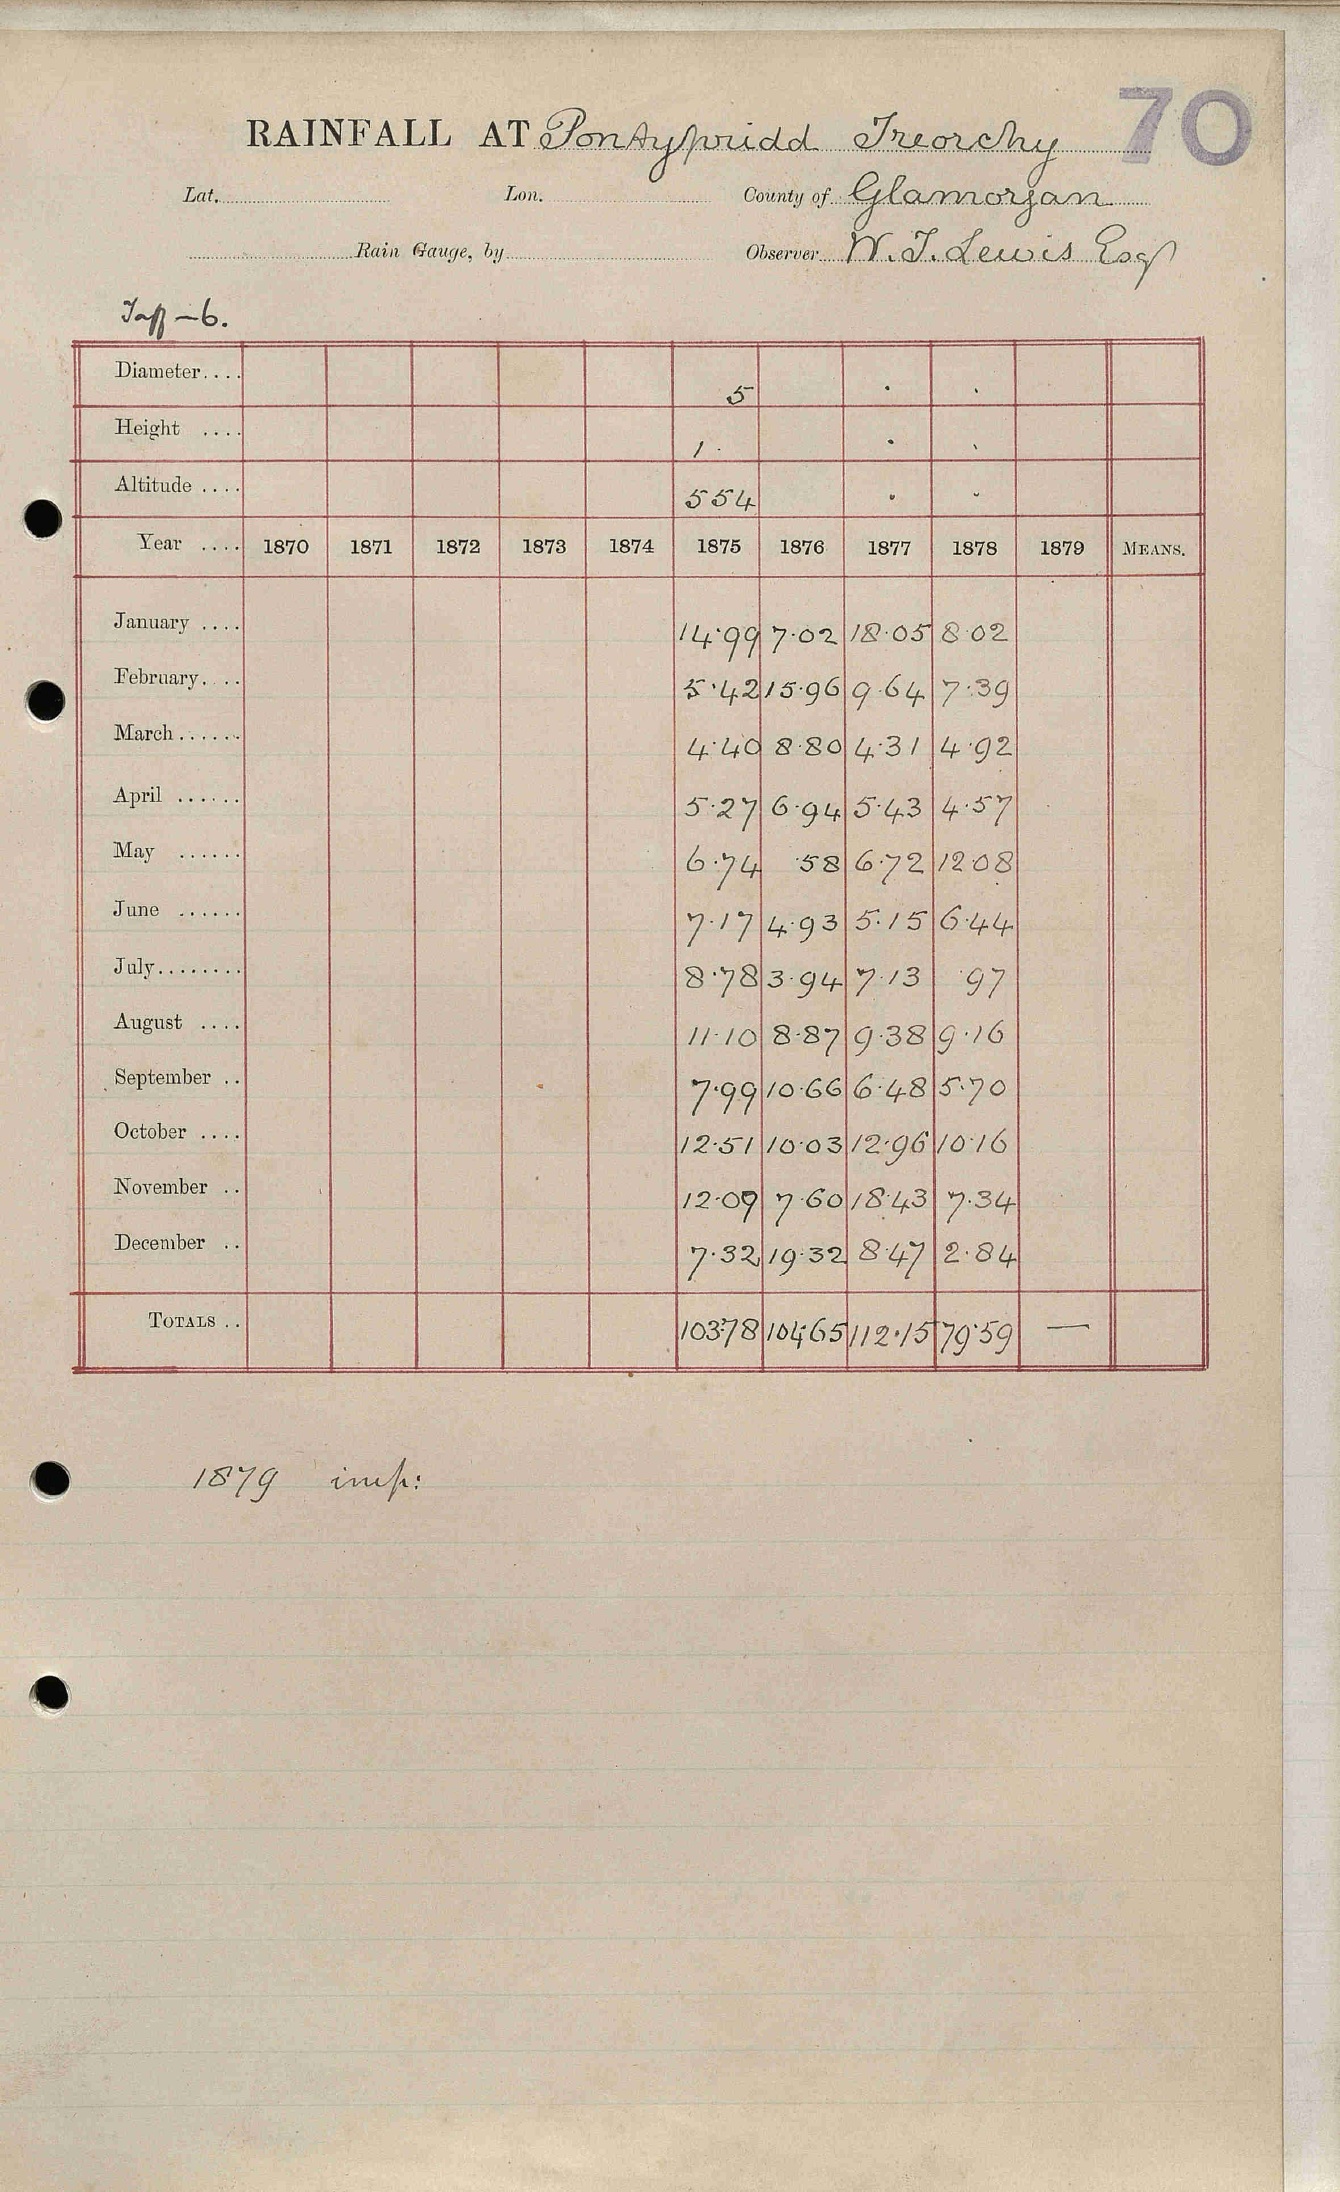 70
RAINFALL AT Pontypridd Treorchy
Lat. Lon. County of Glamorgan
Rain Gauge, by Observer W. T. Lewis Esqr
Taff — 6.
Diameter.... 5 . .
Height .... 1. . .
Altitude .... 554 . .
Year .... 1870 1871 1872 1873 1874 1875 1876 1877 1878 1879 MEANS.
January .... 14.99 7.02 18.05 8.02
February.... 5.42 15.96 9.64 7.39
March...... 4.40 8.80 4.31 4.92
April ...... 5.27 6.94 5.43 4.57
May ...... 6.74 .58 6.72 12.08
June ...... 7.17 4.93 5.15 6.44
July........ 8.78 3.94 7.13 .97
August .... 11.10 8.87 9.38 9.16
September .. 7.99 10.66 6.48 5.70
October .... 12.51 10.03 12.96 10.16
November .. 12.09 7.60 18.43 7.34
December .. 7.32 19.32 8.47 2.84
TOTALS .. 103.78 104.65 112.15 79.59 —
1879 imp: